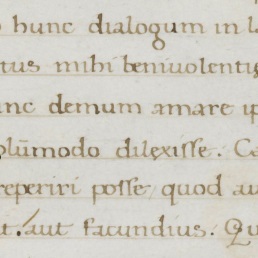 hunc dialogum in l
tus mihi beniuolenti
nc demum amare ip
lūmodo dilexisse. Ca
reperiri posse quod au
t. aut facundius. Qu